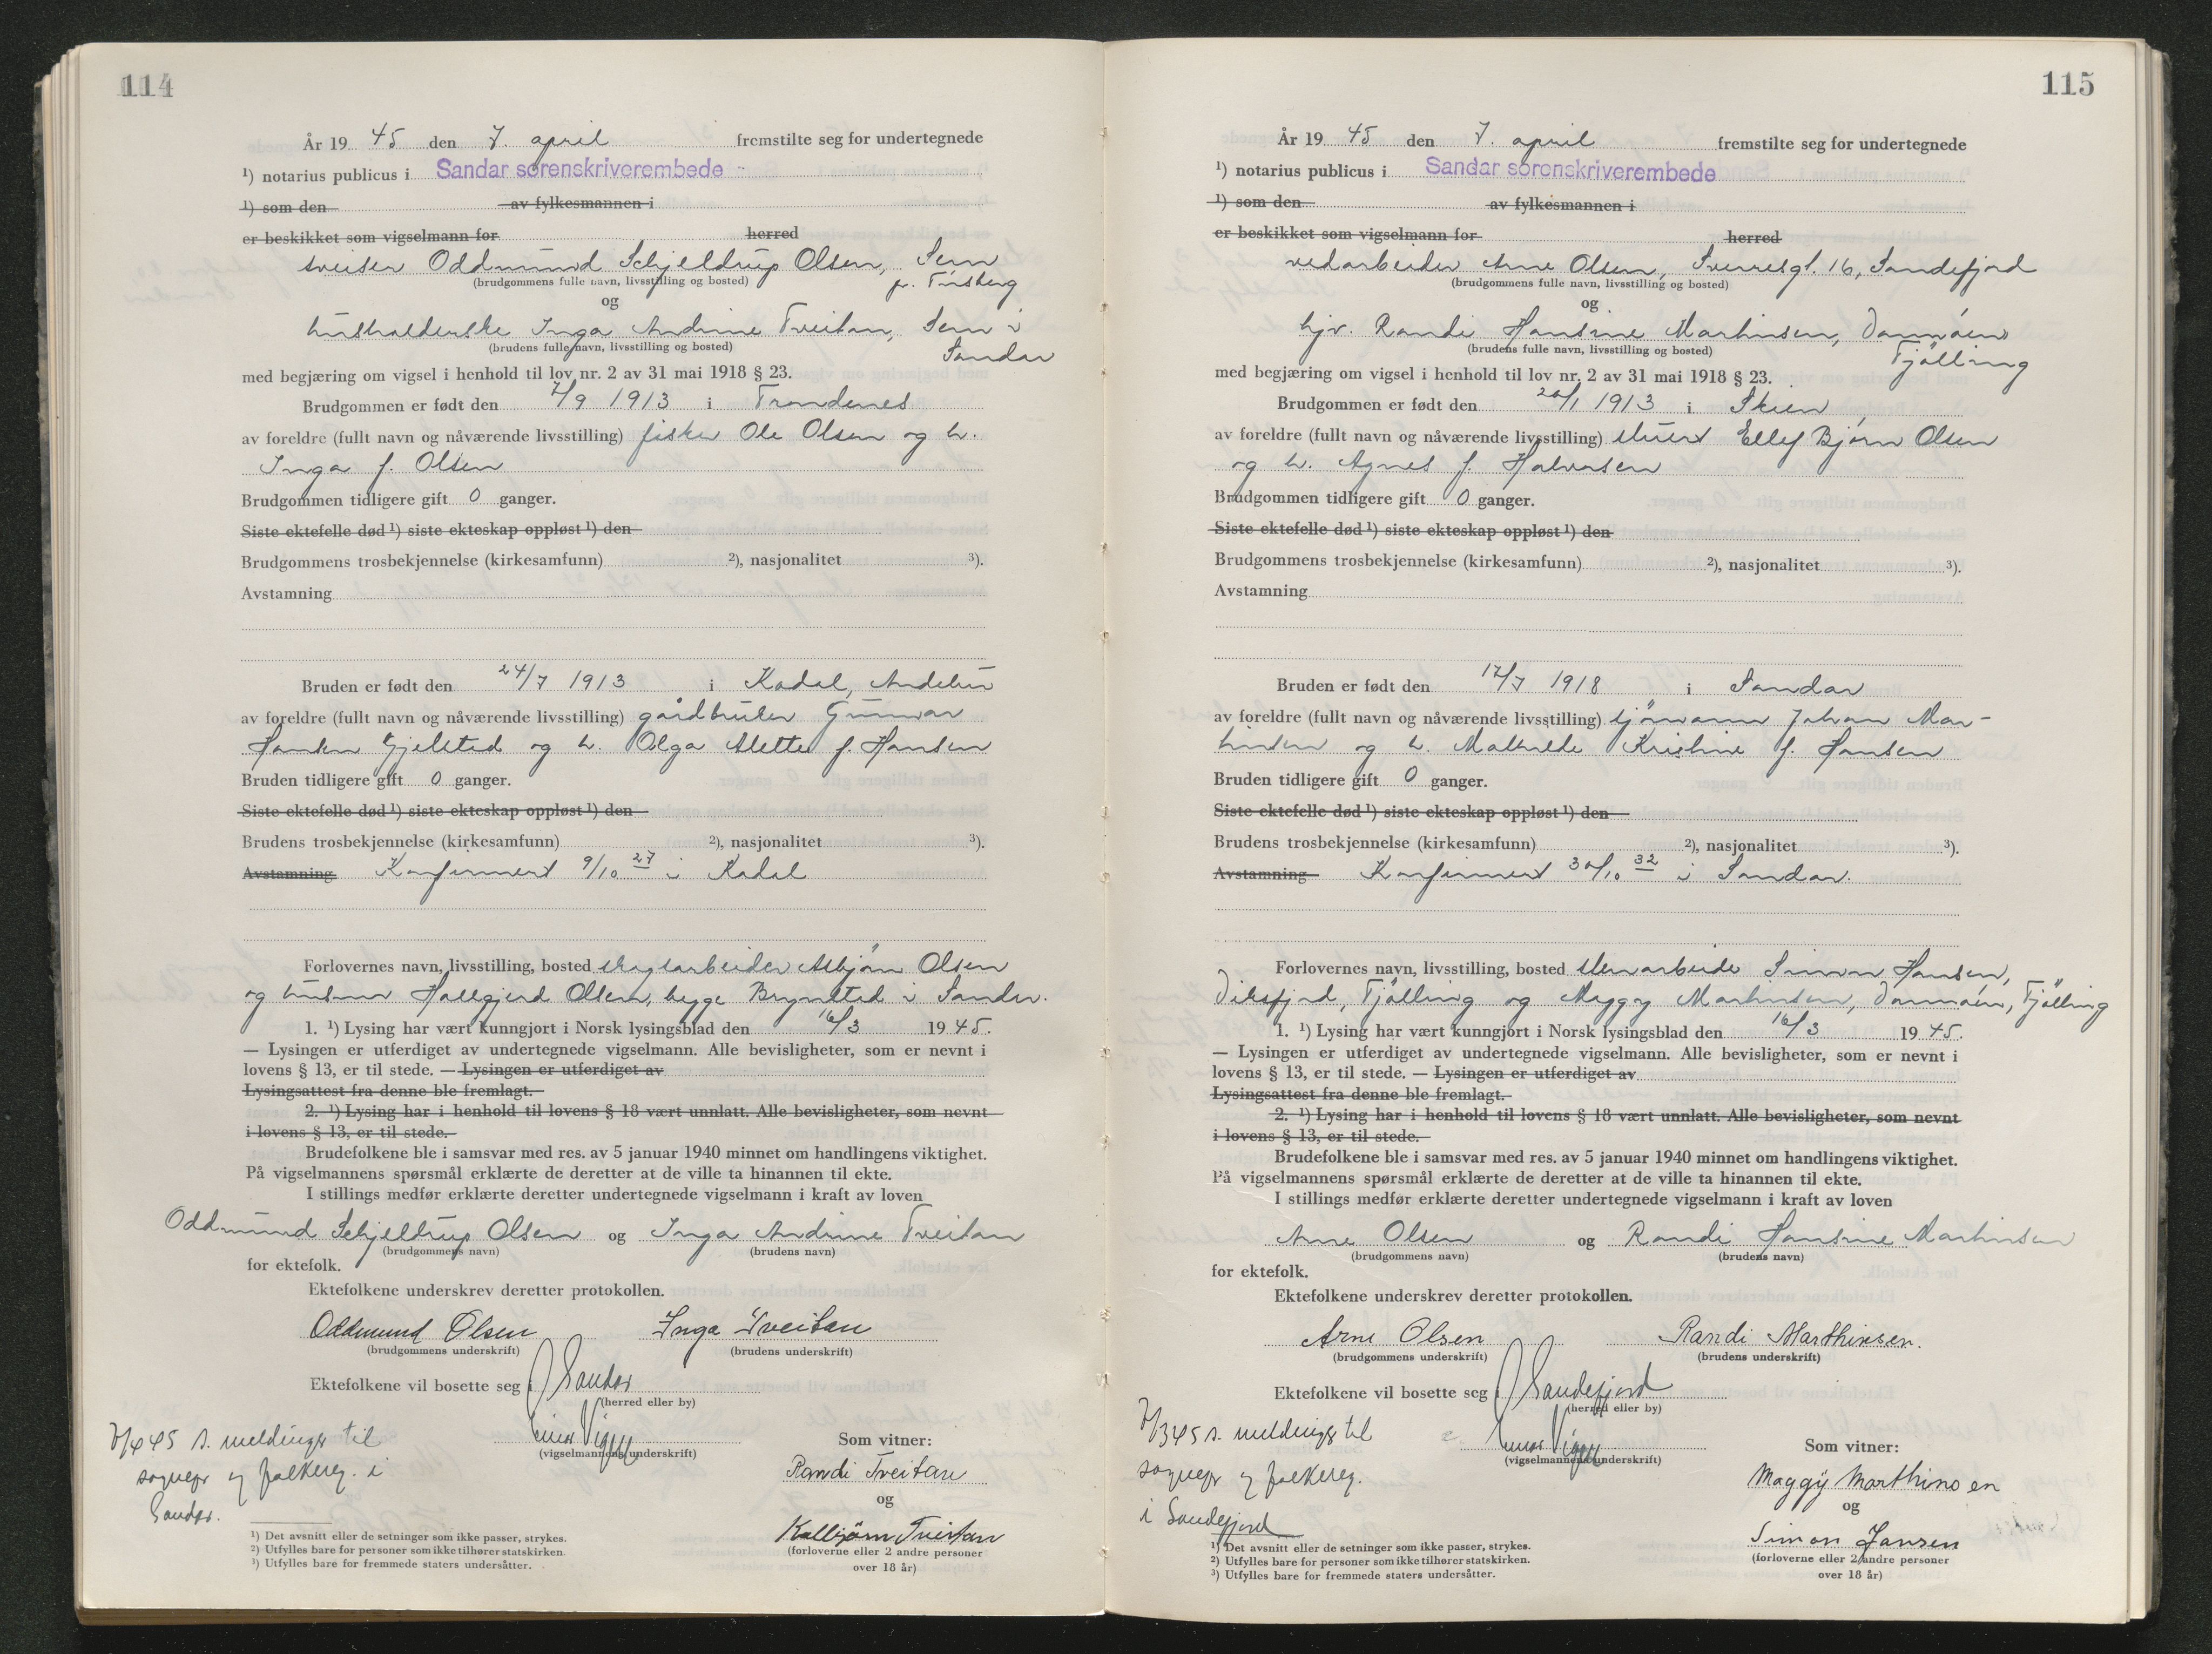 114
År 19 45 den 7. april fremstilte seg for undertegnede
¹) notarius publicus i Sandar sorenskriverembede
¹) som den av fylkesmannen i
er beskikket som vigselmann for herred
sveiser Oddmund Schjeldrup Olsen, Sem
p. Tønsberg
(brudgommens fulle navn, livsstilling og bosted)
og
husholderske Inga Andrine Tveitan, Sem i
Sandar
(brudens fulle navn, livsstilling og bosted)
med begjæring om vigsel i henhold til lov nr. 2 av 31 mai 1918 § 23.
Brudgommen er født den 7/9 1913 i Trondenes
av foreldre (fullt navn og nåværende livsstilling) fisker Ole Olsen og h.
Inga f. Olsen
Brudgommen tidligere gift 0 ganger.
Siste ektefelle død ¹) siste ekteskap oppløst ¹) den
Brudgommens trosbekjennelse (kirkesamfunn) ²), nasjonalitet ³).
Avstamning
Bruden er født den 24/7 1913 i Kodal, Andebu
av foreldre (fullt navn og nåværende livsstilling) gårdbruker Gunnar
Hansen Gjelsted og h. Olga Alette f. Hansen
Bruden tidligere gift 0 ganger.
Siste ektefelle død ¹) siste ekteskap oppløst ¹) den
Brudens trosbekjennelse (kirkesamfunn) ²), nasjonalitet ³).
Avstamning Konfirmert 9/10 27 i Kodal
Forlovernes navn, livsstilling, bosted skogsarbeider Asbjørn Olsen
og hustru Hallgjerd Olsen, begge Brynsted i Sandar.
1. ¹) Lysing har vært kunngjort i Norsk lysingsblad den 16/3 19 45.
— Lysingen er utferdiget av undertegnede vigselmann. Alle bevisligheter, som er nevnt i
lovens § 13, er til stede. — Lysingen er utferdiget av
Lysingsattest fra denne ble fremlagt.
2. ¹) Lysing har i henhold til lovens § 18 vært unnlatt. Alle bevisligheter, som nevnt
i lovens § 13, er til stede.
Brudefolkene ble i samsvar med res. av 5 januar 1940 minnet om handlingens viktighet.
På vigselmannens spørsmål erklærte de deretter at de ville ta hinannen til ekte.
I stillings medfør erklærte deretter undertegnede vigselmann i kraft av loven
Oddmund Schjeldrup Olsen og Inga Andrine Tveitan
(brudgommens navn) (brudens navn)
for ektefolk.
Ektefolkene underskrev deretter protokollen.
Oddmund Olsen Inga Tveitan
(brudgommens underskrift) (brudens underskrift)
Ektefolkene vil bosette seg i Sandar
(herred eller by)
7/4 45 s. meldinger til
sognepr og folkereg. i
Sandar.
(vigselmannens underskrift)
Som vitner:
Randi Tveitan
og
Kallbjørn Tveitan
(forloverne eller 2 andre personer
over 18 år)
¹) Det avsnitt eller de setninger som ikke passer, strykes.
²) Utfylles bare for personer som ikke tilhører statskirken.
³) Utfylles bare for fremmede staters undersåtter.
115
År 19 45 den 7. april fremstilte seg for undertegnede
¹) notarius publicus i Sandar sorenskriverembede
¹) som den av fylkesmannen i
er beskikket som vigselmann for herred
vedarbeider Arne Olsen, Sverresgt. 16, Sandefjord
(brudgommens fulle navn, livsstilling og bosted)
og
hjv. Randi Hansine Marthinsen,
Tjølling
(brudens fulle navn, livsstilling og bosted)
med begjæring om vigsel i henhold til lov nr. 2 av 31 mai 1918 § 23.
Brudgommen er født den 20/1 1913 i Skien
av foreldre (fullt navn og nåværende livsstilling) Ellef Bjørn Olsen
og h. Agnes f. Halvorsen
Brudgommen tidligere gift 0 ganger.
Siste ektefelle død ¹) siste ekteskap oppløst ¹) den
Brudgommens trosbekjennelse (kirkesamfunn) ²), nasjonalitet ³).
Avstamning
Bruden er født den 17/7 1918 i Sandar
av foreldre (fullt navn og nåværende livsstilling) sjømann Johan Mar-
thinsen og h. Mathilde Kristine f. Hansen
Bruden tidligere gift 0 ganger.
Siste ektefelle død ¹) siste ekteskap oppløst ¹) den
Brudens trosbekjennelse (kirkesamfunn) ²), nasjonalitet ³).
Avstamning Konfirmert 30/10 32 i Sandar.
Forlovernes navn, livsstilling, bosted stenarbeider Simon Hansen,
Viksfjord, Tjølling og Maggy Marthinsen, Tjølling
1. ¹) Lysing har vært kunngjort i Norsk lysingsblad den 16/3 19 45.
— Lysingen er utferdiget av undertegnede vigselmann. Alle bevisligheter, som er nevnt i
lovens § 13, er til stede. — Lysingen er utferdiget av
Lysingsattest fra denne ble fremlagt.
2. ¹) Lysing har i henhold til lovens § 18 vært unnlatt. Alle bevisligheter, som nevnt
i lovens § 13, er til stede.
Brudefolkene ble i samsvar med res. av 5 januar 1940 minnet om handlingens viktighet.
På vigselmannens spørsmål erklærte de deretter at de ville ta hinannen til ekte.
I stillings medfør erklærte deretter undertegnede vigselmann i kraft av loven
Arne Olsen og Randi Hansine Marthinsen
(brudgommens navn) (brudens navn)
for ektefolk.
Ektefolkene underskrev deretter protokollen.
Arne Olsen Randi Marthinsen.
(brudgommens underskrift) (brudens underskrift)
Ektefolkene vil bosette seg i Sandefjord
(herred eller by)
s. meldinger til
sognepr og folkereg.
i Sandefjord
(vigselmannens underskrift)
Som vitner:
Maggy Marthinsen
og
Simon Hansen
(forloverne eller 2 andre personer
over 18 år)
¹) Det avsnitt eller de setninger som ikke passer, strykes.
²) Utfylles bare for personer som ikke tilhører statskirken.
³) Utfylles bare for fremmede staters undersåtter.